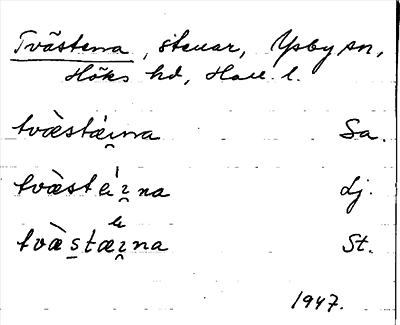 Tvästena, stenar, Ysby sn,
Höks hd, Hall. l.
tvàestáeı̯na Sa.
tvàestáeı̯na Lj.
tvàes̲tæı̯na St.
1947.